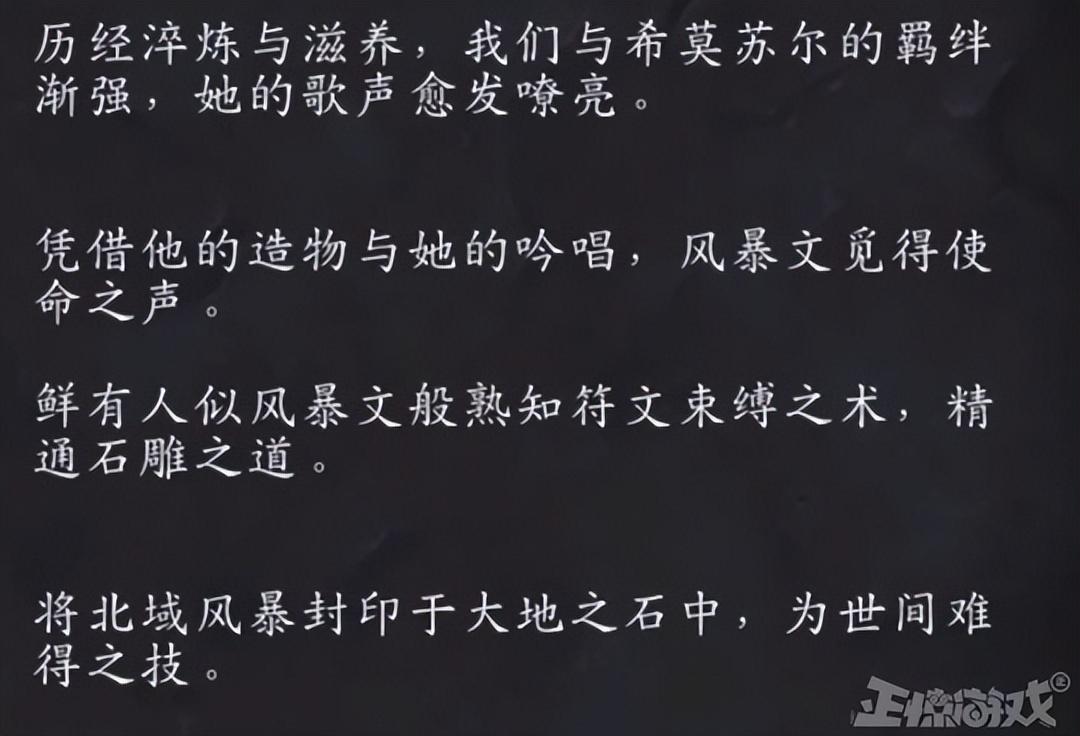 历经淬炼与滋养，我们与希莫苏尔的羁绊
渐强，她的歌声愈发嘹亮。
凭借他的造物与她的吟唱，风暴文觅得使
命之声。
鲜有人似风暴文般熟知符文束缚之术，精
通石雕之道。
将北域风暴封印于大地之石中，为世间难
得之技。
正惊游戏